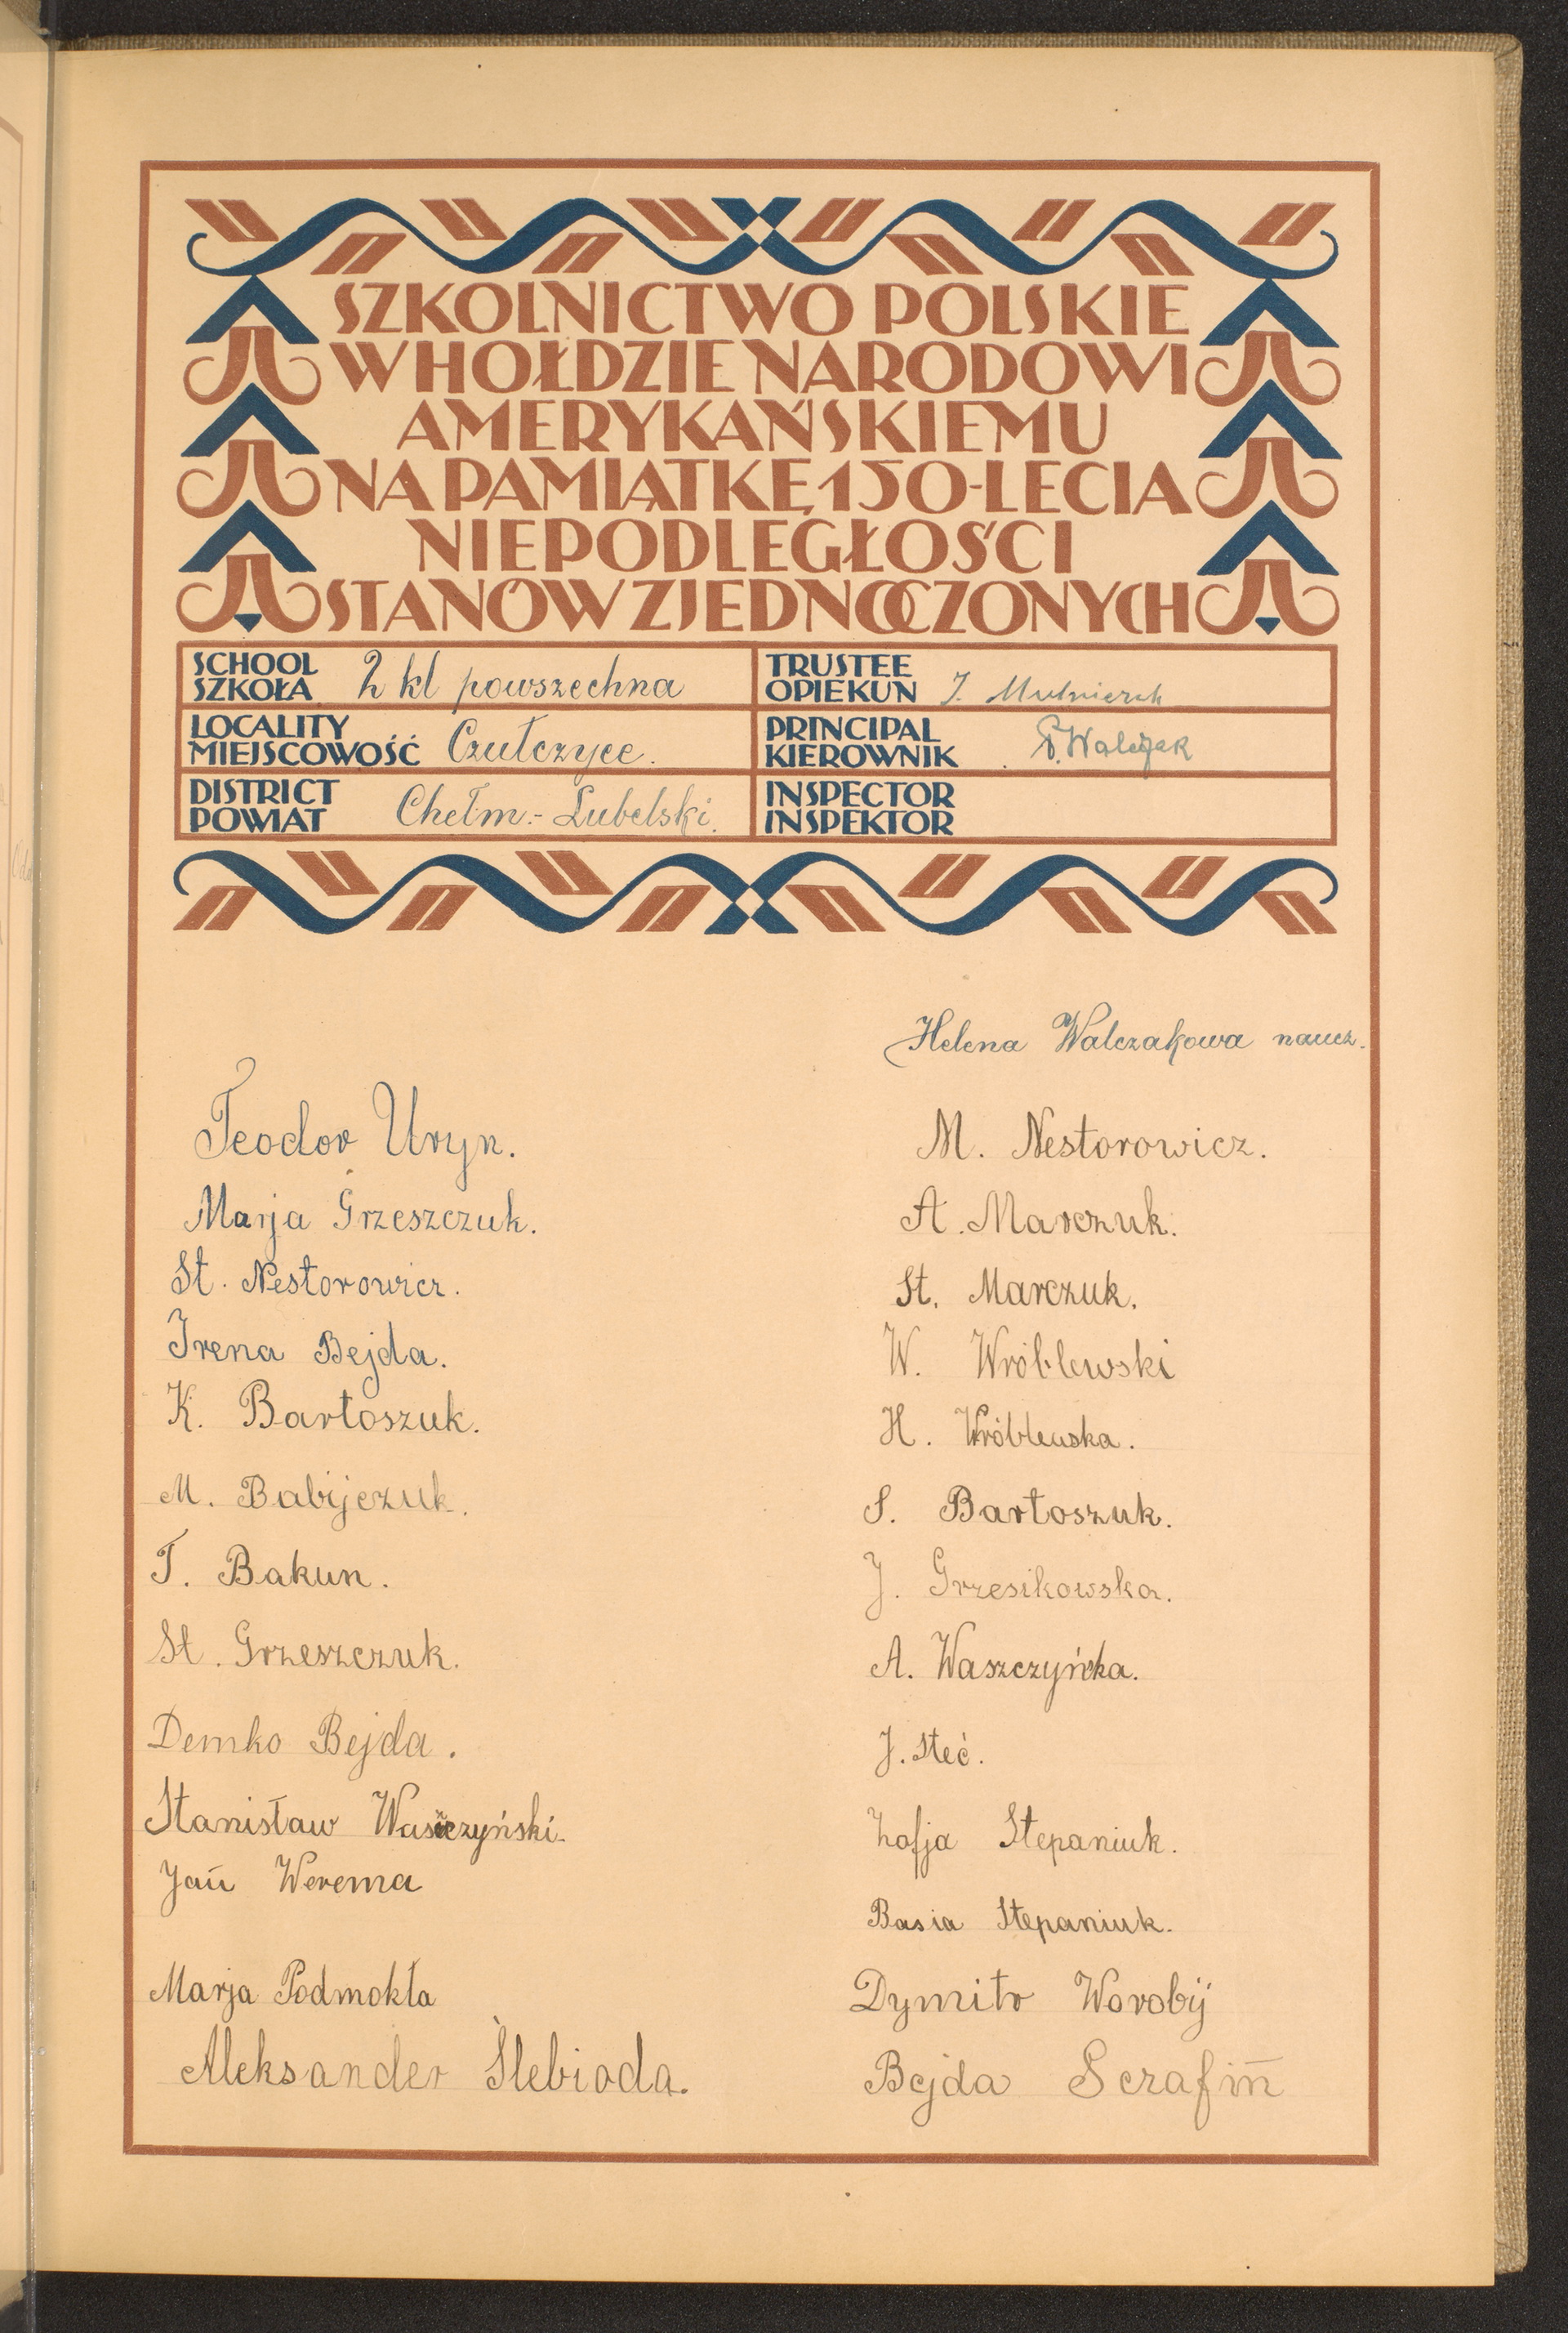 SZKOLNICTWO POLSKIE
W HOŁDZIE NARODOWI
AMERYKAŃSKIEMU
NA PAMIĄTKĘ 150-LECIA
NIEPODLEGŁOŚCI
STANÓW ZJEDNOCZONYCH
SCHOOL
SZKOŁA 2 kl powszechna
TRUSTEE
OPIEKUN J.
LOCALITY
MIEJSCOWOŚĆ Czułczyce.
PRINCIPAL
KIEROWNIK P. Walczak
DISTRICT
POWIAT Chełm.-Lubelski.
INSPECTOR
INSPEKTOR
Helena Walczakowa naucz.
Teodor Uryn.
Marja Grzeszczuk.
St. Nestorowicz.
Irena Bejda.
K. Bartoszuk.
M. Babijczuk.
T. Bakun.
St. Grzeszczuk.
Demko Bejda.
Stanisław Waszczyński.
Jan Werema
Marja Podmokła
Aleksander Ślebioda.
M. Nestorowicz.
A. Marczuk.
St. Marczuk.
W. Wróblewski
H. Wróblewska.
S. Bartoszuk.
J. Grzesikowska.
A. Waszczyńska.
J. Steć.
Zofja Stepaniuk.
Basia Stepaniuk.
Dymitr Worobij
Bejda Serafin